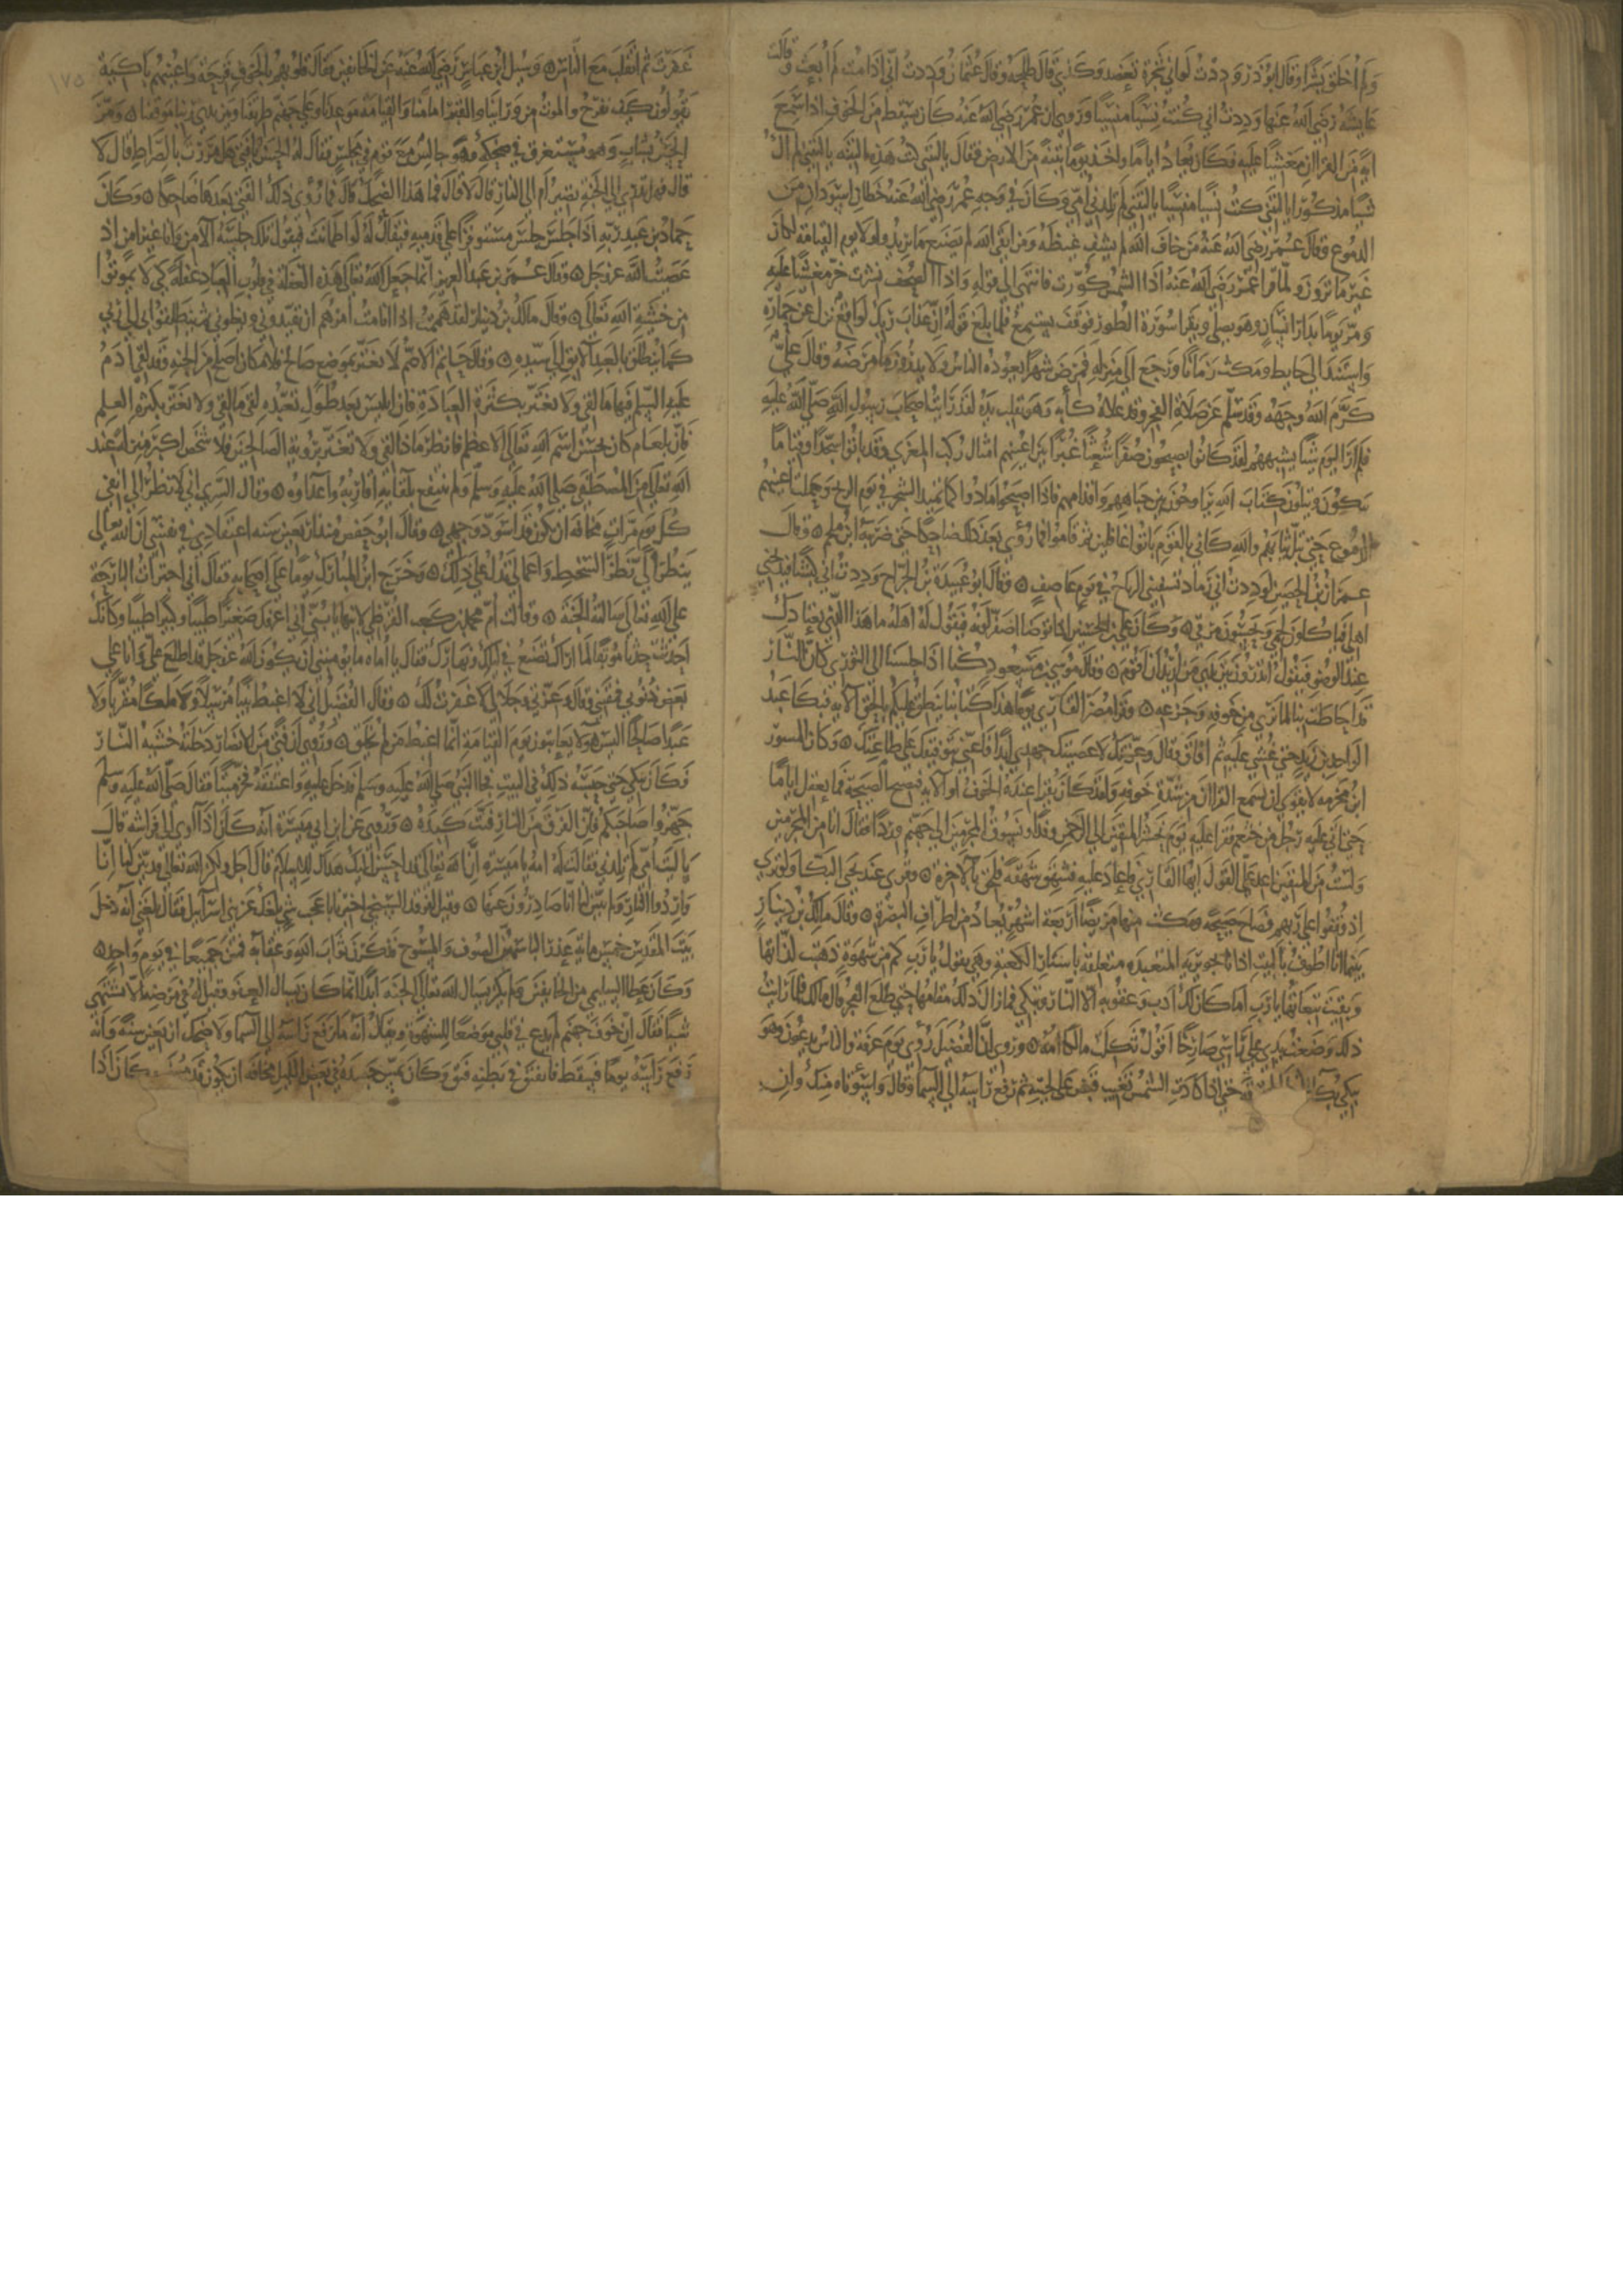 ولم اخلق بشرا وقال ابو ذر وددت لو اني شجرة تعضد وكذلك قال طلحة وقال عثمان وددت اني اذا مت لم ابعث وقالت
عايشة رضي الله عنها وددت اني كنت نسيا منسيا وروي ان عمر رضي الله عنه كان يسقط من الخوف اذا سمع
اية من القران مغشيا عليه فكان يعاد اياما واخذ يوما تبنة من الارض فقال يا ليتني كنت هذه التبنة يا ليتني لم اك
شيا مذكورا يا ليتني كنت نسيا منسيا يا ليتني لم تلدني امي وكان في وجه عمر رضي الله عنه خطان اسودان من
الدموع وقال عمر رضي الله عنه من خاف الله لم يشف غيظه ومن اتقى الله لم يصنع ما يريد ولولا يوم القيامة لكان
غير ما ترون ولما قرا عمر رضي الله عنه اذا الشمس كورت فانتهى الى قوله واذا الصحف نشرت خر مغشيا عليه
ومر يوما بدار انسان وهو يصلي ويقرا سورة الطور فوقف يستمع فلما بلغ قوله ان عذاب ربك لواقع نزل عن حماره
واستند الى حايط ومكث زمانا ورجع الى منزله فمرض شهرا يعوده الناس ولا يدرون ما مرضه وقال علي
كرم الله وجهه وقد سلم عن صلاة الفجر وقد علاه كابه وهو يقلب يده لقد رايت اصحاب رسول الله صلى الله عليه
فلم ار اليوم شيا يشبههم لقد كانوا يصبحون صفرا شعثا غبرا بين اعينهم امثال ركب المعزي وقد باتوا سجدا وقياما
يتلون كتاب الله يراوحون بين جباههم واقدامهم فاذا اصبحوا مادوا كما يميد الشجر في يوم الريح وهملت اعينهم
الدموع حتى تبل ثيابهم والله كاني بالقوم باتوا غافلين ثم قام فما رؤي بعد ذلك ضاحكا حتى ضربه ابن ملجم وقال
عمران بن الحصين لوددت اني رماد تنسفني الرياح في يوم عاصف وقال ابو عبيدة بن الجراح وددت اني كبش فيذبحني
اهلي فياكلون لحمي ويحسون مرقي وكان علي بن الحسين اذا توضا اصفر لونه فيقول له اهله ما هذا الذي يعتادك
عند الوضوء فيقول اتدرون بين يدي من اريد ان اقوم وقال موسى بن مسعود كنا اذا جلسنا الى الثوري كان النار
قد احاطت بنا لما نرى من خوفه وجزعه وقرا مضر القاري يوما هذا كتابنا ينطق عليكم بالحق الاية فبكا عبد
الواحد بن زيد حتى غشي عليه ثم افاق وقال وعزتك لا عصيتك جهدي ابدا فاعني بتوفيقك على طاعتك وكان المسور
ابن مخرمة لا يقوى ان يسمع القران من شدة خوفه ولقد كان يقرا عنده الحرف او الاية فيصيح الصيحة فما يعقل اياما
حتى اتى عليه رجل من خثعم فقرا عليه يوم نحشر المتقين الى الرحمن وفدا ونسوق المجرمين الى جهنم وردا فقال انا من المجرمين
ولست من المتقين اعد علي القول ايها القاري فاعاد عليه فشهق شهقة فلحق بالاخرة وقري عند يحيى البكا ولو ترى
اذ وقفوا على ربهم فصاح صيحة ومكث منها مريضا اربعة اشهر يعاد من اطراف البصرة وقال مالك بن دينار
بينما انا اطوف بالبيت اذا انا بجويرية المتعبدة متعلقة باستار الكعبة وهي تقول يا رب كم من شهوة ذهبت لذاتها
وبقيت تبعاتها يا رب اما كان لك ادب وعقوبة الا النار وتبكي فما زال ذلك مقامها حتى طلع الفجر قال مالك فلما رايت
ذلك وضعت يدي على راسي صارخا اقول ثكلت مالكا امه وروي ان الفضيل رؤي يوم عرفة والناس يدعون وهو
يبكي بكا حتى اذا كادت الشمس تغيب قبض على لحيته ثم رفع راسه الى السما وقال واسوتاه منك وان
١٧٥
غفرت ثم انقلب مع الناس وسيل ابن عباس رضي الله عنه عن الخايفين فقال قلوبهم بالخوف قرحة واعينهم باكية
يقولون كيف نفرح والموت من ورانا والقبر امامنا والقيامة موعدنا وعلى جهنم طريقنا وبين يدي ربنا موقفنا ومر
الحسن بشاب وهو مستغرق في ضحكه وهو جالس مع قوم في مجلس فقال له الحسن يا فتى هل مررت بالصراط قال لا
قال فهل تدري الى الجنة تصير ام الى النار قال لا قال فما هذا الضحك قال فما رؤي ذلك الفتى بعدها ضاحكا وكان
حماد بن عبد ربه اذا جلس جلس مستوفزا على قدميه فيقال له لو اطمانت فيقول تلك جلسة الامن وانا غير امن اذ
عصيت الله عز وجل وقال عمر بن عبد العزيز انما جعل الله تعالى هذه الغفلة في قلوب العباد غفلة كي لا يموتوا
من خشية الله تعالى وقال مالك بن دينار لقد هممت اذا انا مت امرهم ان يقيدوني ويغلوني ثم ينطلقوا بي الى ربي
كما ينطلق بالعبد الابق الى سيده وقال حاتم الاصم لا تغتر بموضع صالح فلا مكان اصلح من الجنة وقد لقي ادم
عليه السلم فيها ما لقي ولا تغتر بكثرة العبادة فان ابليس بعد طول تعبده لقي ما لقي ولا تغتر بكثرة العلم
فان بلعام كان يحسن اسم الله تعالى الاعظم فانظر ماذا لقي ولا تغتر برؤية الصالحين فلا شخص اكبر منزلة عند
الله تعالى من المصطفى صلى الله عليه وسلم ولم ينتفع بلقايه اقاربه واعداوه وقال السري اني لانظر الى انفي
كل يوم مرات مخافة ان يكون قد اسود وجهي وقال ابو حفص منذ اربعين سنه اعتقادي في نفسي ان الله تعالى
ينظر الي نظر السخط واعمالي تدل على ذلك وخرج ابن المبارك يوما على اصحابه فقال اني اجترات البارحة
على الله تعالى سالته الجنة وقالت ام محمد بن كعب القرظي لابنها يا بني اني اعرفك صغيرا طيبا وكبيرا طيبا وكانك
احدثت حدثا موبقا لما اراك تصنع في ليلك ونهارك فقال يا اماه ما يومنني ان يكون الله عز وجل قد اطلع علي وانا على
بعض ذنوبي فمقتني وقال وعزتي وجلالي لا غفرت لك وقال الفضيل اني لا اغبط نبيا مرسلا ولا ملكا مقربا ولا
عبدا صالحا اليس هولا يعاينون يوم القيامة انما اغبط من لم يخلق وروي ان فتى من الانصار دخلته خشية النار
فكان يبكي حتى حبسه ذلك في البيت فجا النبي صلى الله عليه وسلم فدخل عليه واعتنقه فخر ميتا فقال صلى الله عليه وسلم
جهزوا صاحبكم فان الفرق من النار فتت كبده وروي عن ابن ابي ميسرة انه كان اذا اوى الى فراشه قال
يا ليت امي لم تلدني فقالت له امه يا ميسرة ان الله تعالى قد احسن اليك هداك للاسلام قال اجل ولكن الله تعالى قد بين لنا انا
واردوا النار ولم يبين لنا انا صادرون عنها وقيل لفرقد السبخي اخبرنا باعجب شي بلغك عن بني اسرايل فقال بلغني انه دخل
بيت المقدس خمس ماية عذرا لباسهن الصوف والمسوح فتذكرن ثواب الله وعقابه فمتن جميعا في يوم واحد
وكان عطا السليمي من الخايفين ولم يكن يسال الله تعالى الجنة ابدا انما كان يسال العفو وقيل له في مرضه الا تشتهي
شيا فقال ان خوف جهنم لم يدع في قلبي موضعا للشهوة ويقال انه ما رفع راسه الى السما ولا ضحك اربعين سنة وانه
رفع راسه يوما فسقط فانفتق في بطنه فتق وكان يمس جسده في بعض الليل مخافة ان يكون قد مسخ كان اذا